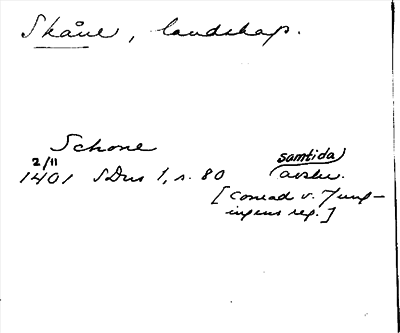 Skåne, landskap.
Schone
2/11
samtida
1401 SDns 1, s. 80 avskr.
[Conrad v. Jung-
ingens reg.]